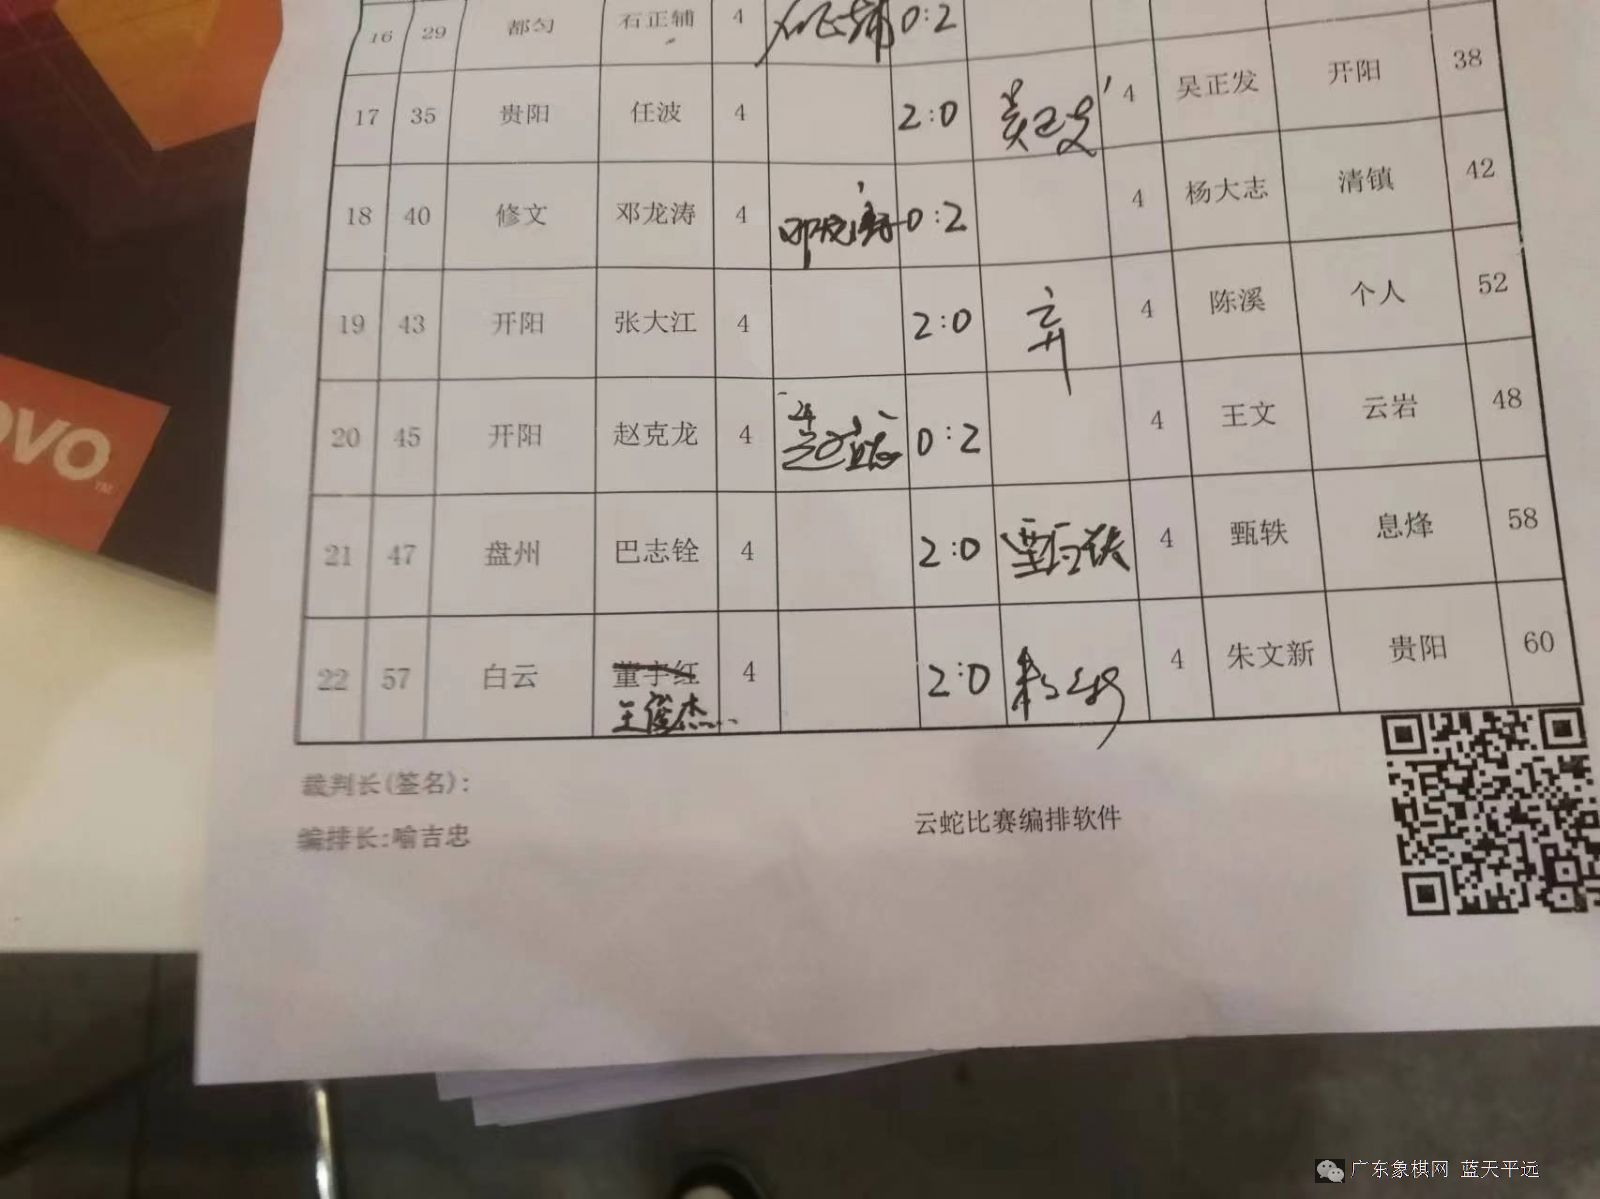 16 29 都匀 石正辅 4 石正辅 0:2
17 35 贵阳 任波 4 2:0 4 吴正发 开阳 38
18 40 修文 邓龙涛 4 邓龙涛 0:2 4 杨大志 清镇 42
19 43 开阳 张大江 4 2:0 弃 4 陈溪 个人 52
20 45 开阳 赵克龙 4 0:2 4 王文 云岩 48
21 47 盘州 巴志铨 4 2:0 甄轶 4 甄轶 息烽 58
22 57 白云 董宇红 4 2:0 4 朱文新 贵阳 60
王俊杰
裁判长(签名):
编排长:喻吉忠
云蛇比赛编排软件
OVO
TM
广东象棋网 蓝天平远